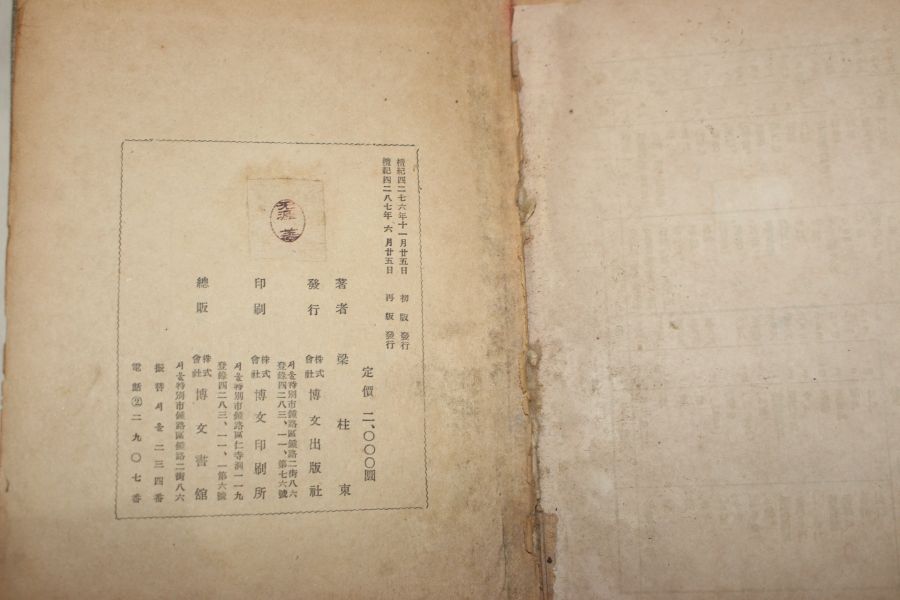 檀紀四二七六年十一月廿五日 初版發行
檀紀四二八七年六月廿五日 再版發行
定價 二、〇〇〇圓
著者 梁柱東
發行 株式會社 博文出版社
서울特別市鍾路區鍾路二街八六
登錄四二八三、一一、一第七六號
印刷 株式會社 博文印刷所
서울特別市鍾路區仁寺洞一一九
登錄四二八三、一一、一第六號
總販 株式會社 博文書館
서울特別市鍾路區鍾路二街八六
振替서울二三四番
電話②二九〇七番